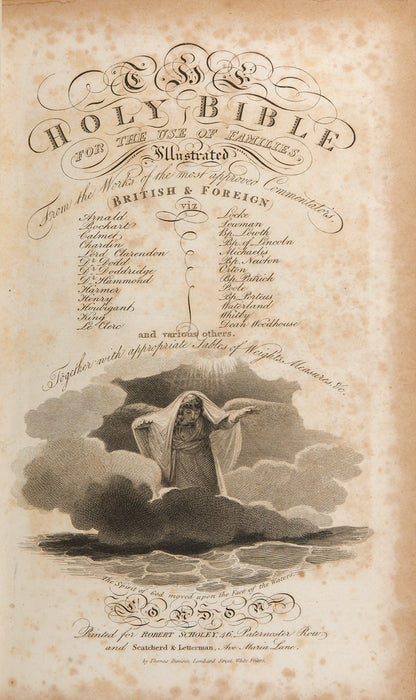 THE
HOLY BIBLE
FOR THE USE OF FAMILIES,
Illustrated
From the Works of the most approved Commentators
BRITISH & FOREIGN
viz
Arnald
Bochart
Calmet
Chardin
Lord Clarendon
Dr Dodd
Dr Doddridge
Dr Hammond
Harmer
Henry
Houbigant
King
Le Clerc
Locke
Lowman
Bp. Lowth
Bp. of Lincoln
Michaelis
Bp. Newton
Orton
Bp. Patrick
Poole
Bp. Porteus
Waterland
Whitby
Dean Woodhouse
and various others.
Together with appropriate Tables of Weights, Measures &c.
The Spirit of God moved upon the Face of the Waters.
LONDON
Printed for ROBERT SCHOLEY, 46, Paternoster Row,
and Scatcherd & Letterman, Ave Maria Lane.
by Thomas Davison, Lombard Street, White Friars.